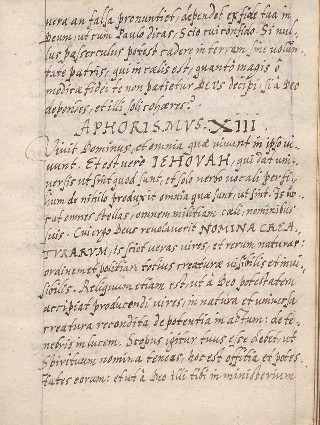 vera an falsa pronunties, dependet ex fide tua in
Deum, ut cum Paulo dicas, Scio cui confido. Si nul-
lus passerculus potest cadere in terram, sine volun-
tate patris, qui in cælis est, quanto magis ô
modicæ fidei te non patietur DEVS decipi, si à Deo
dependes, et illi soli cohæres?
APHORISMVS. XIII
Vivit Dominus, et omnia quæ vivunt in ipso vi-
vunt. Et est vere IEHOVAH, qui dat uni-
versis ut sint quod sunt, et solo verbo vocali per fi-
lium de nihilo produxit omnia quæ sunt, ut sint. Is vo-
cat omnes stellas, omnem militiam cæli, nominibus
suis. Cui ergo Deus revelaverit NOMINA CREA-
TVRARVM, Is sciet veras vires, et rerum naturas:
ordinem et politiam totius creaturæ visibilis et invi-
sibilis. Reliquum etiam est, ut à Deo potestatem
accipiat producendi vires, in natura et universa
creatura recondita de potentia in actum: de te-
nebris in lucem. Scopus igitur tuus esse debet, ut
Spirituum nomina teneas, hoc est offitia et potes-
tates eorum: et ut à Deo illi tibi in ministerium